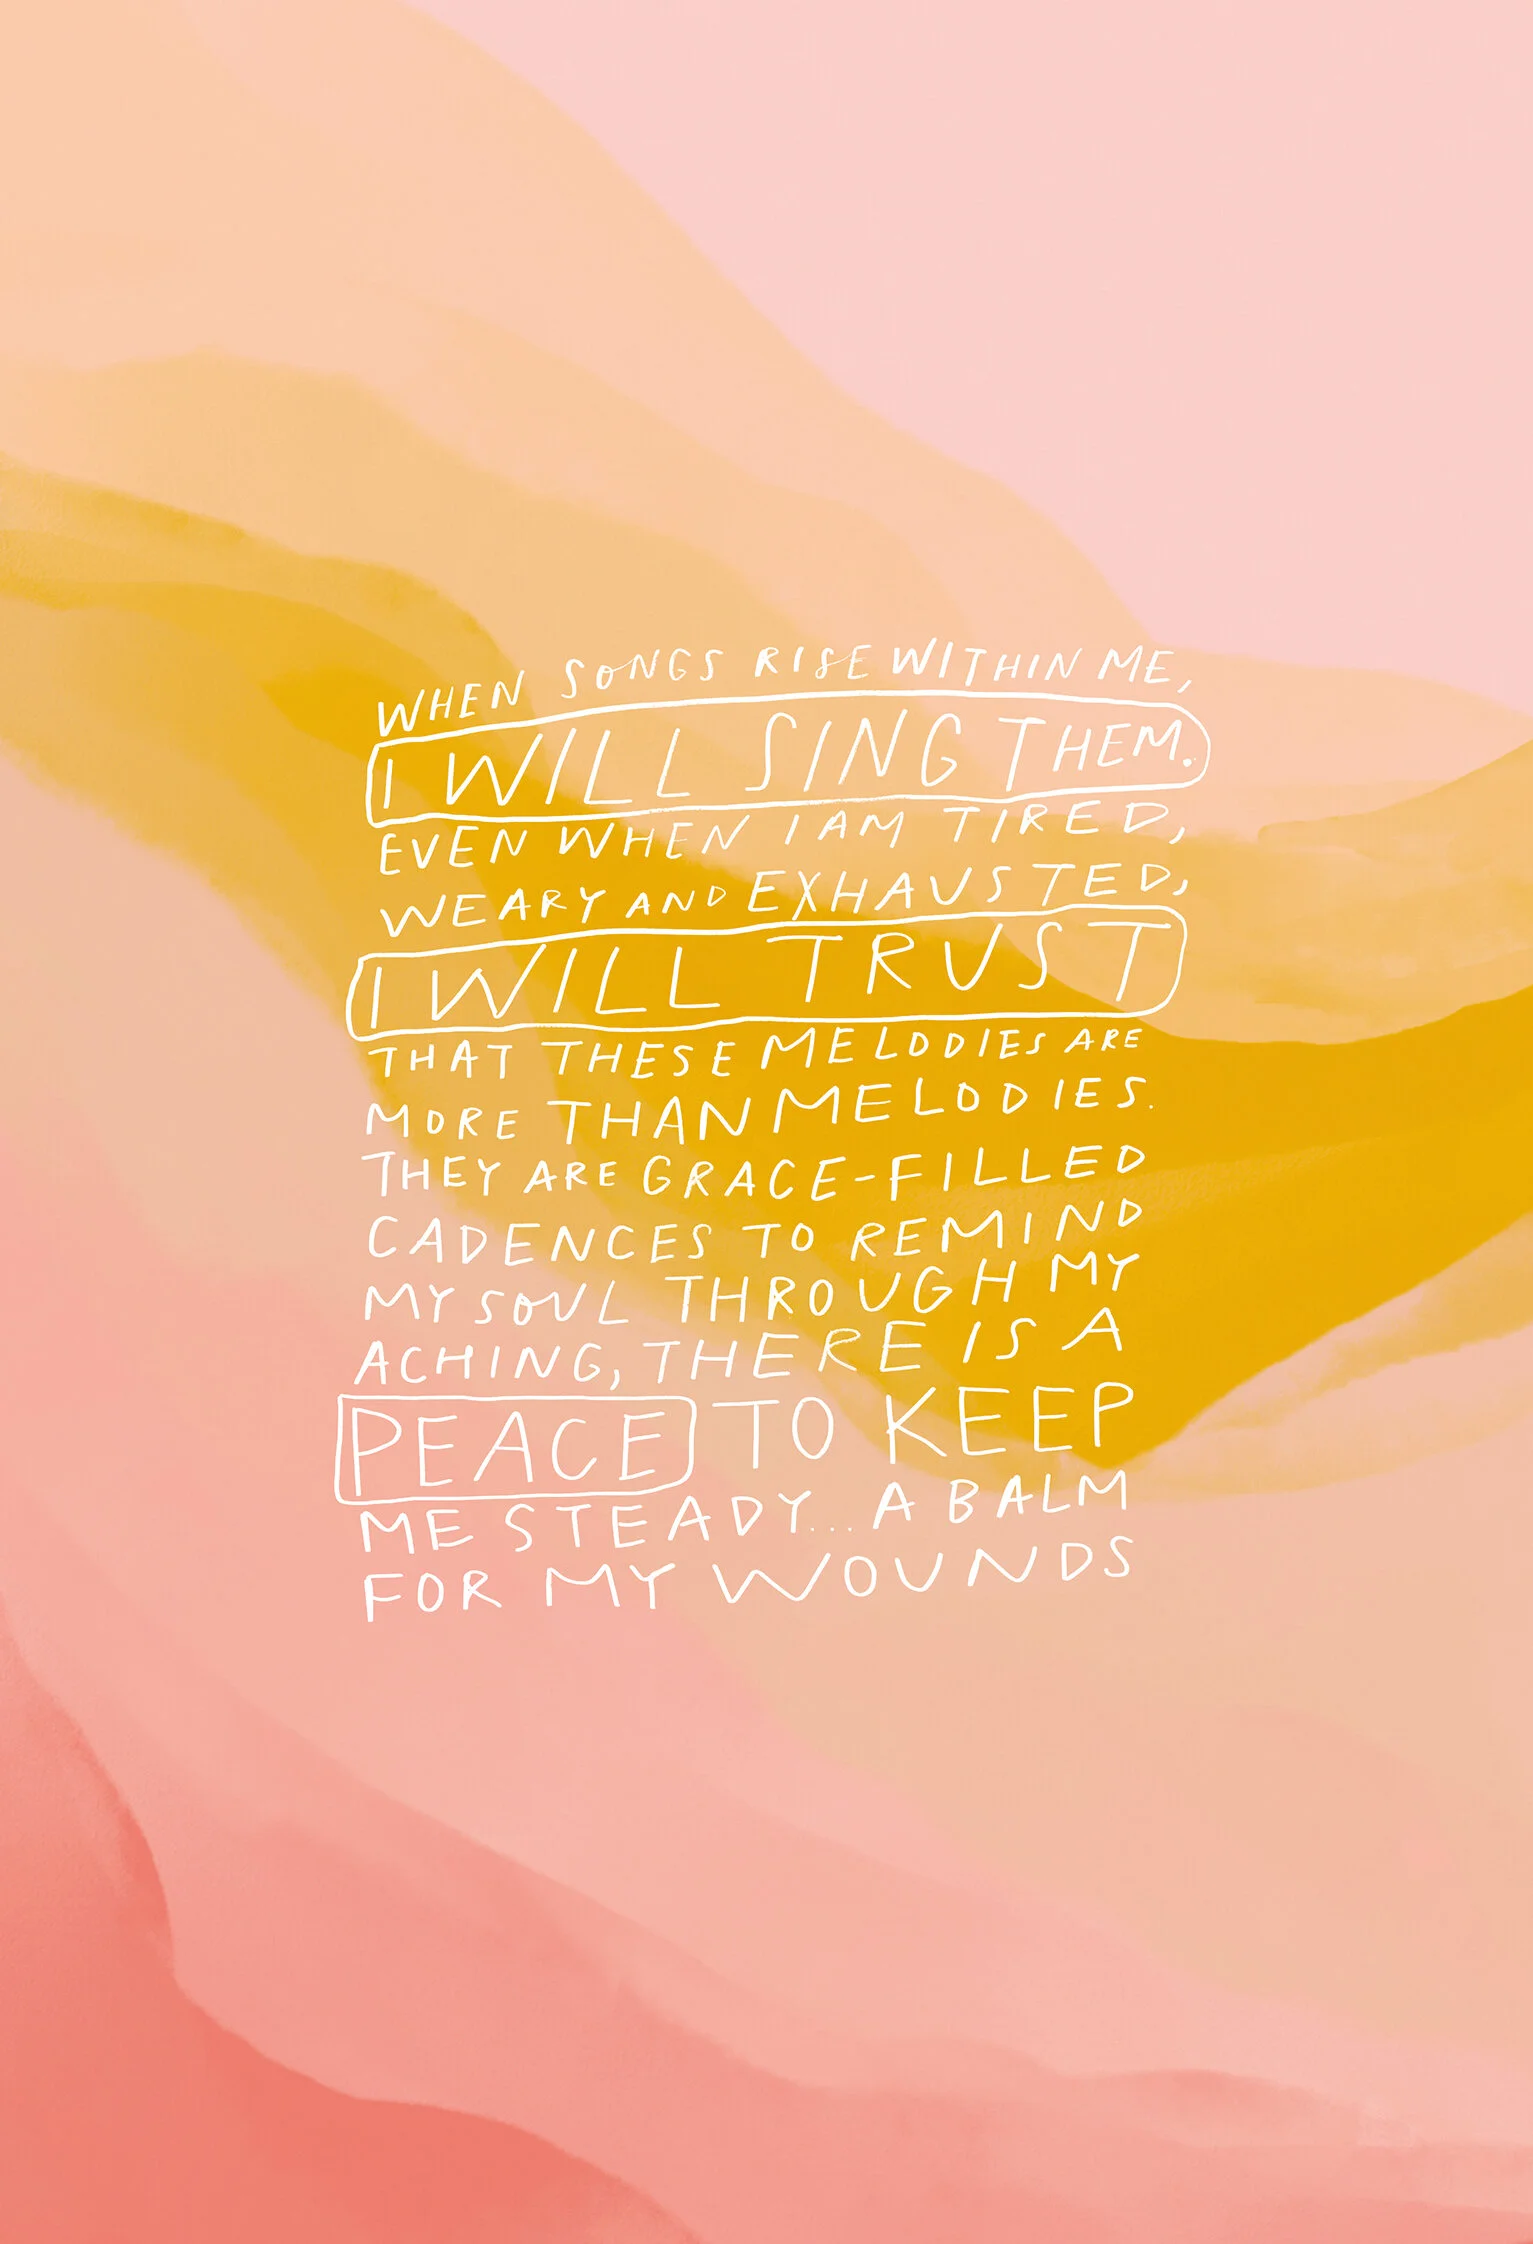 WHEN SONGS RISE WITHIN ME,
I WILL SING THEM.
EVEN WHEN I AM TIRED,
WEARY AND EXHAUSTED,
I WILL TRUST
THAT THESE MELODIES ARE
MORE THAN MELODIES.
THEY ARE GRACE-FILLED
CADENCES TO REMIND
MY SOUL THROUGH MY
ACHING, THERE IS A
PEACE TO KEEP
ME STEADY... A BALM
FOR MY WOUNDS